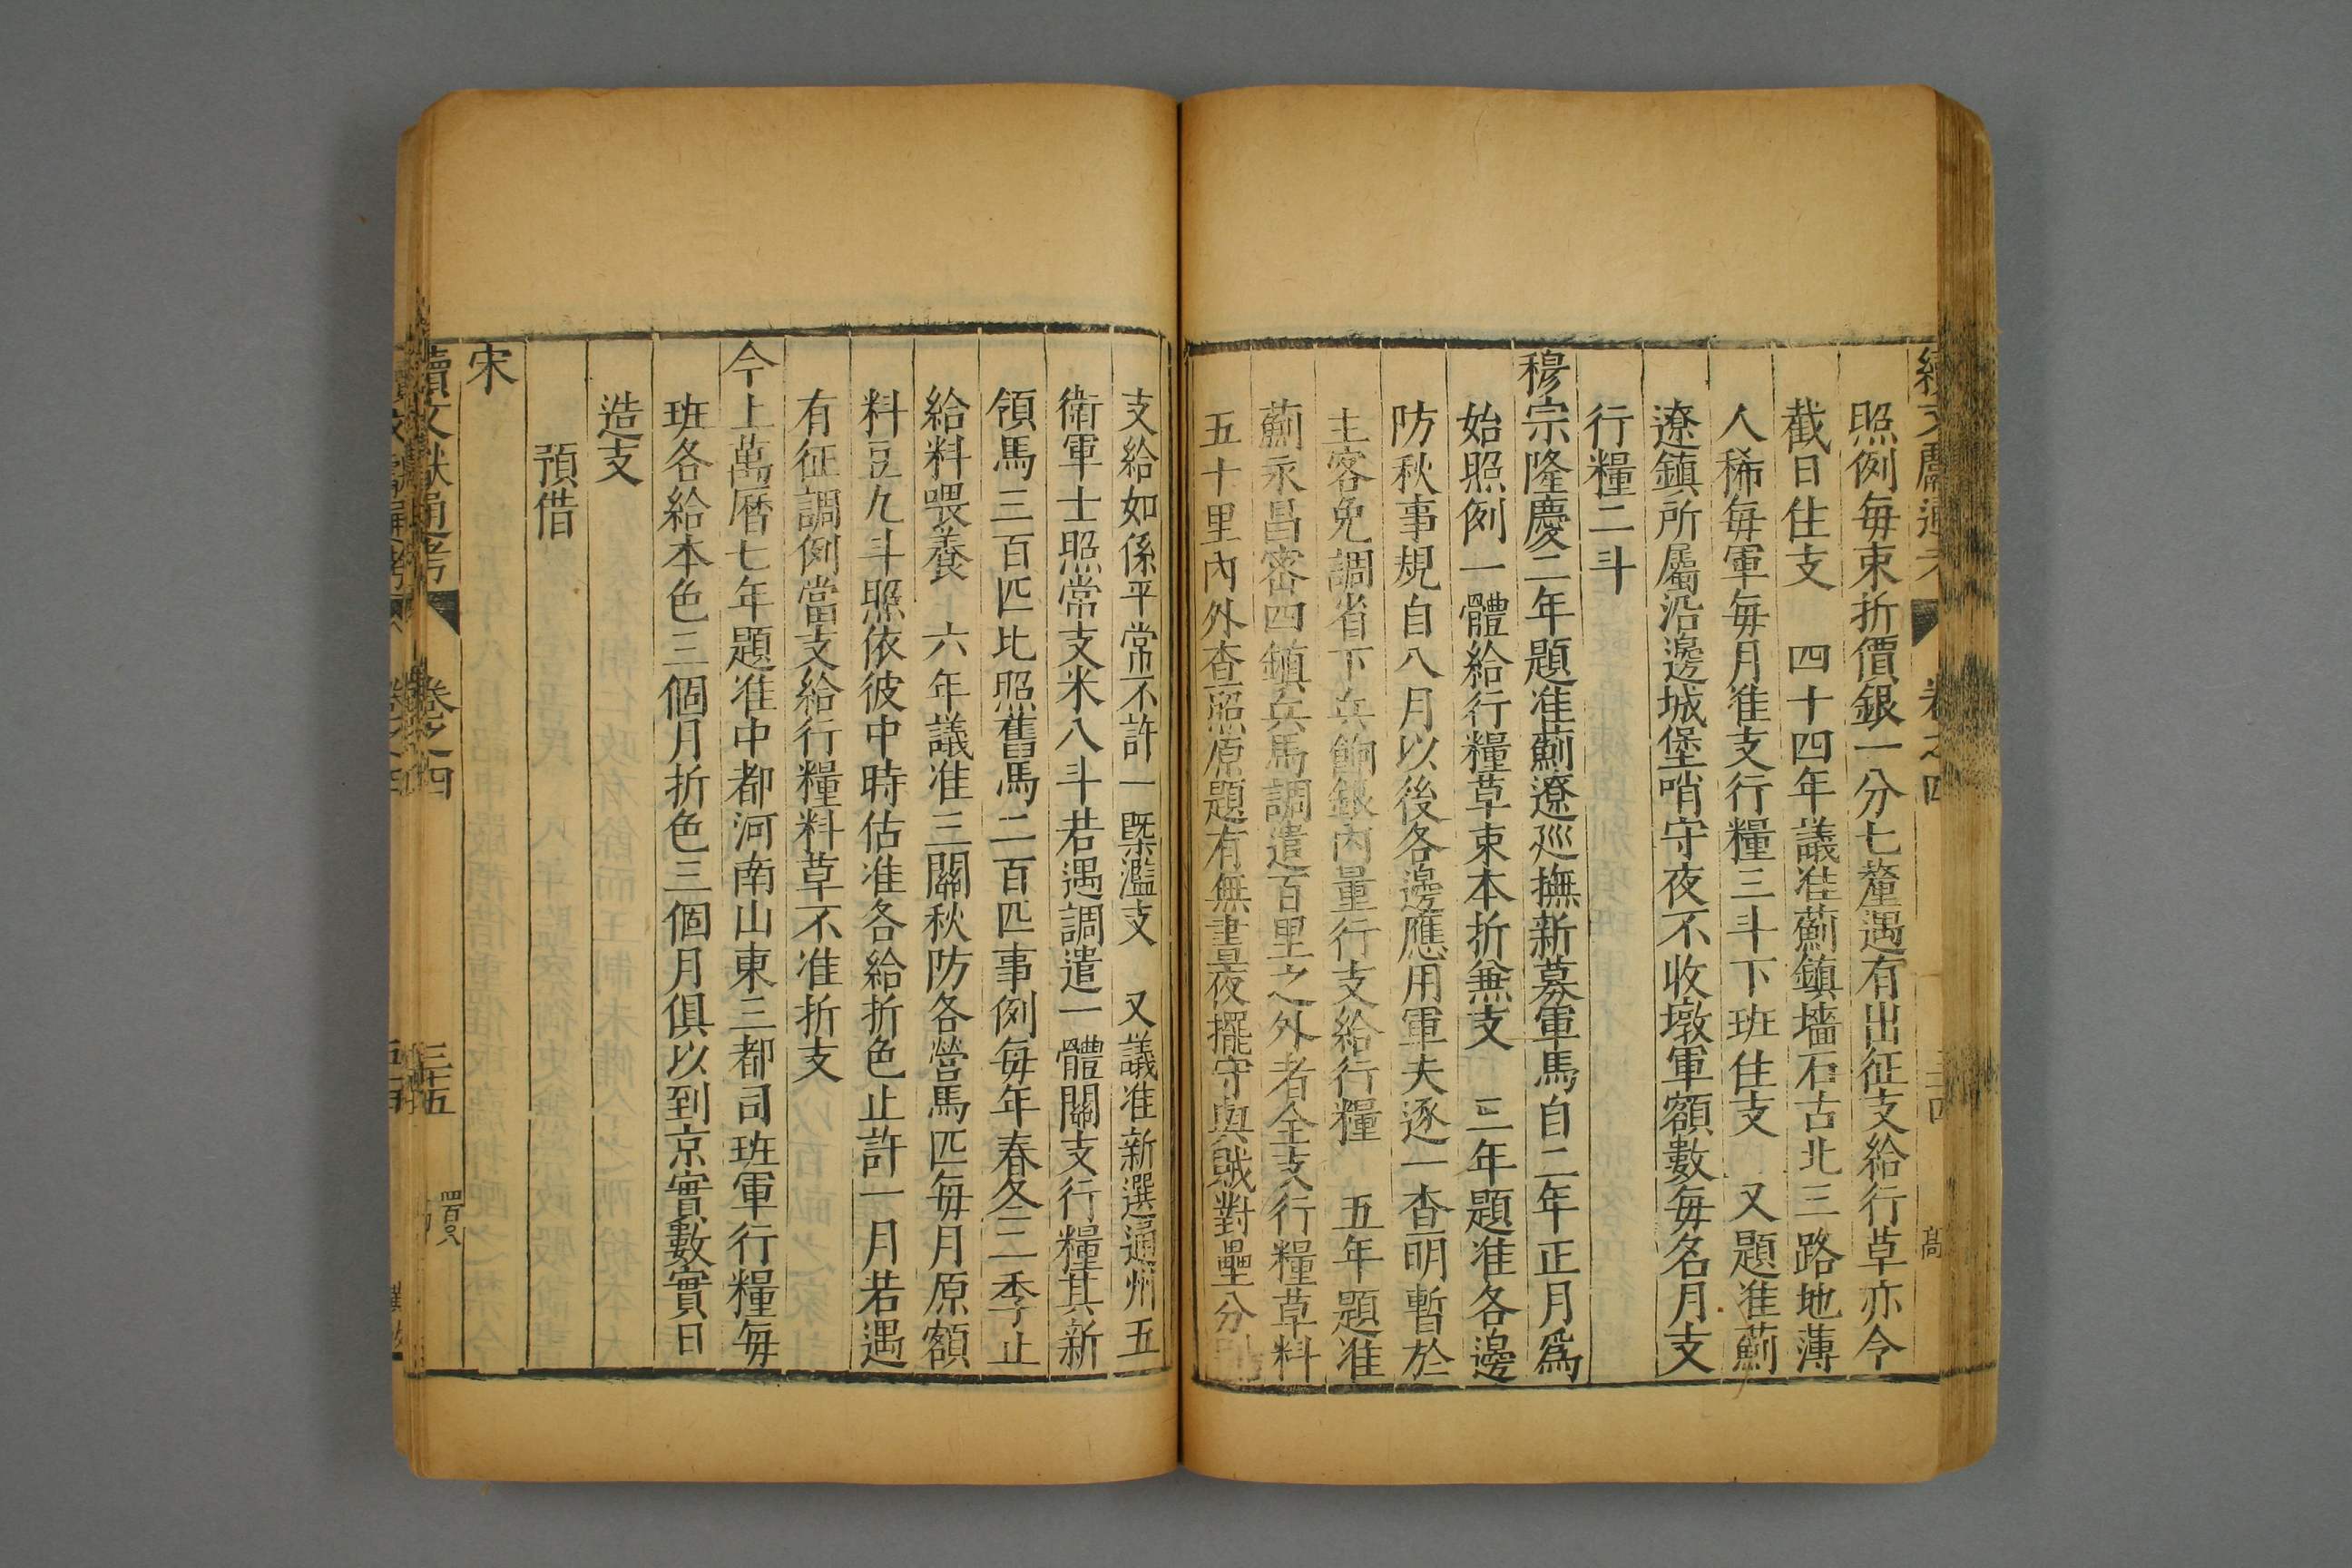 續文獻通考 卷之四 三十四 髙
照例每束折價銀一分七釐遇有出征支給行草亦令
截日住支 四十四年議准薊鎮墻石古北三路地薄
人稀每軍每月准支行糧三斗下班住支 又題准薊
遼鎮所屬沿邊城堡哨守夜不收墩軍額數每名月支
行糧二斗
穆宗隆慶二年題准薊遼巡撫新募軍馬自二年正月爲
始照例一體給行糧草束本折兼支 三年題准各邊
防秋事規自八月以後各邊應用軍夫逐一查明暫於
主客免調省下兵餉銀內量行支給行糧 五年題准
薊永昌密四鎮兵馬調遣百里之外者全支行糧草料
五十里內外查照原題有無晝夜擺守與賊對壘分別
支給如係平常不許一槩濫支 又議准新選通州五
衛軍士照常支米八斗若遇調遣一體關支行糧其新
領馬三百匹比照舊馬二百匹事例每年春冬二季止
給料喂養 六年議准三關秋防各營馬匹每月原額
料豆九斗照依彼中時估准各給折色止許一月若遇
有征調例當支給行糧料草不准折支
今上萬曆七年題准中都河南山東三都司班軍行糧每
班各給本色三個月折色三個月俱以到京實數實日
造支
預借
宋
續文獻通考 卷之四 三十五 四百〇八